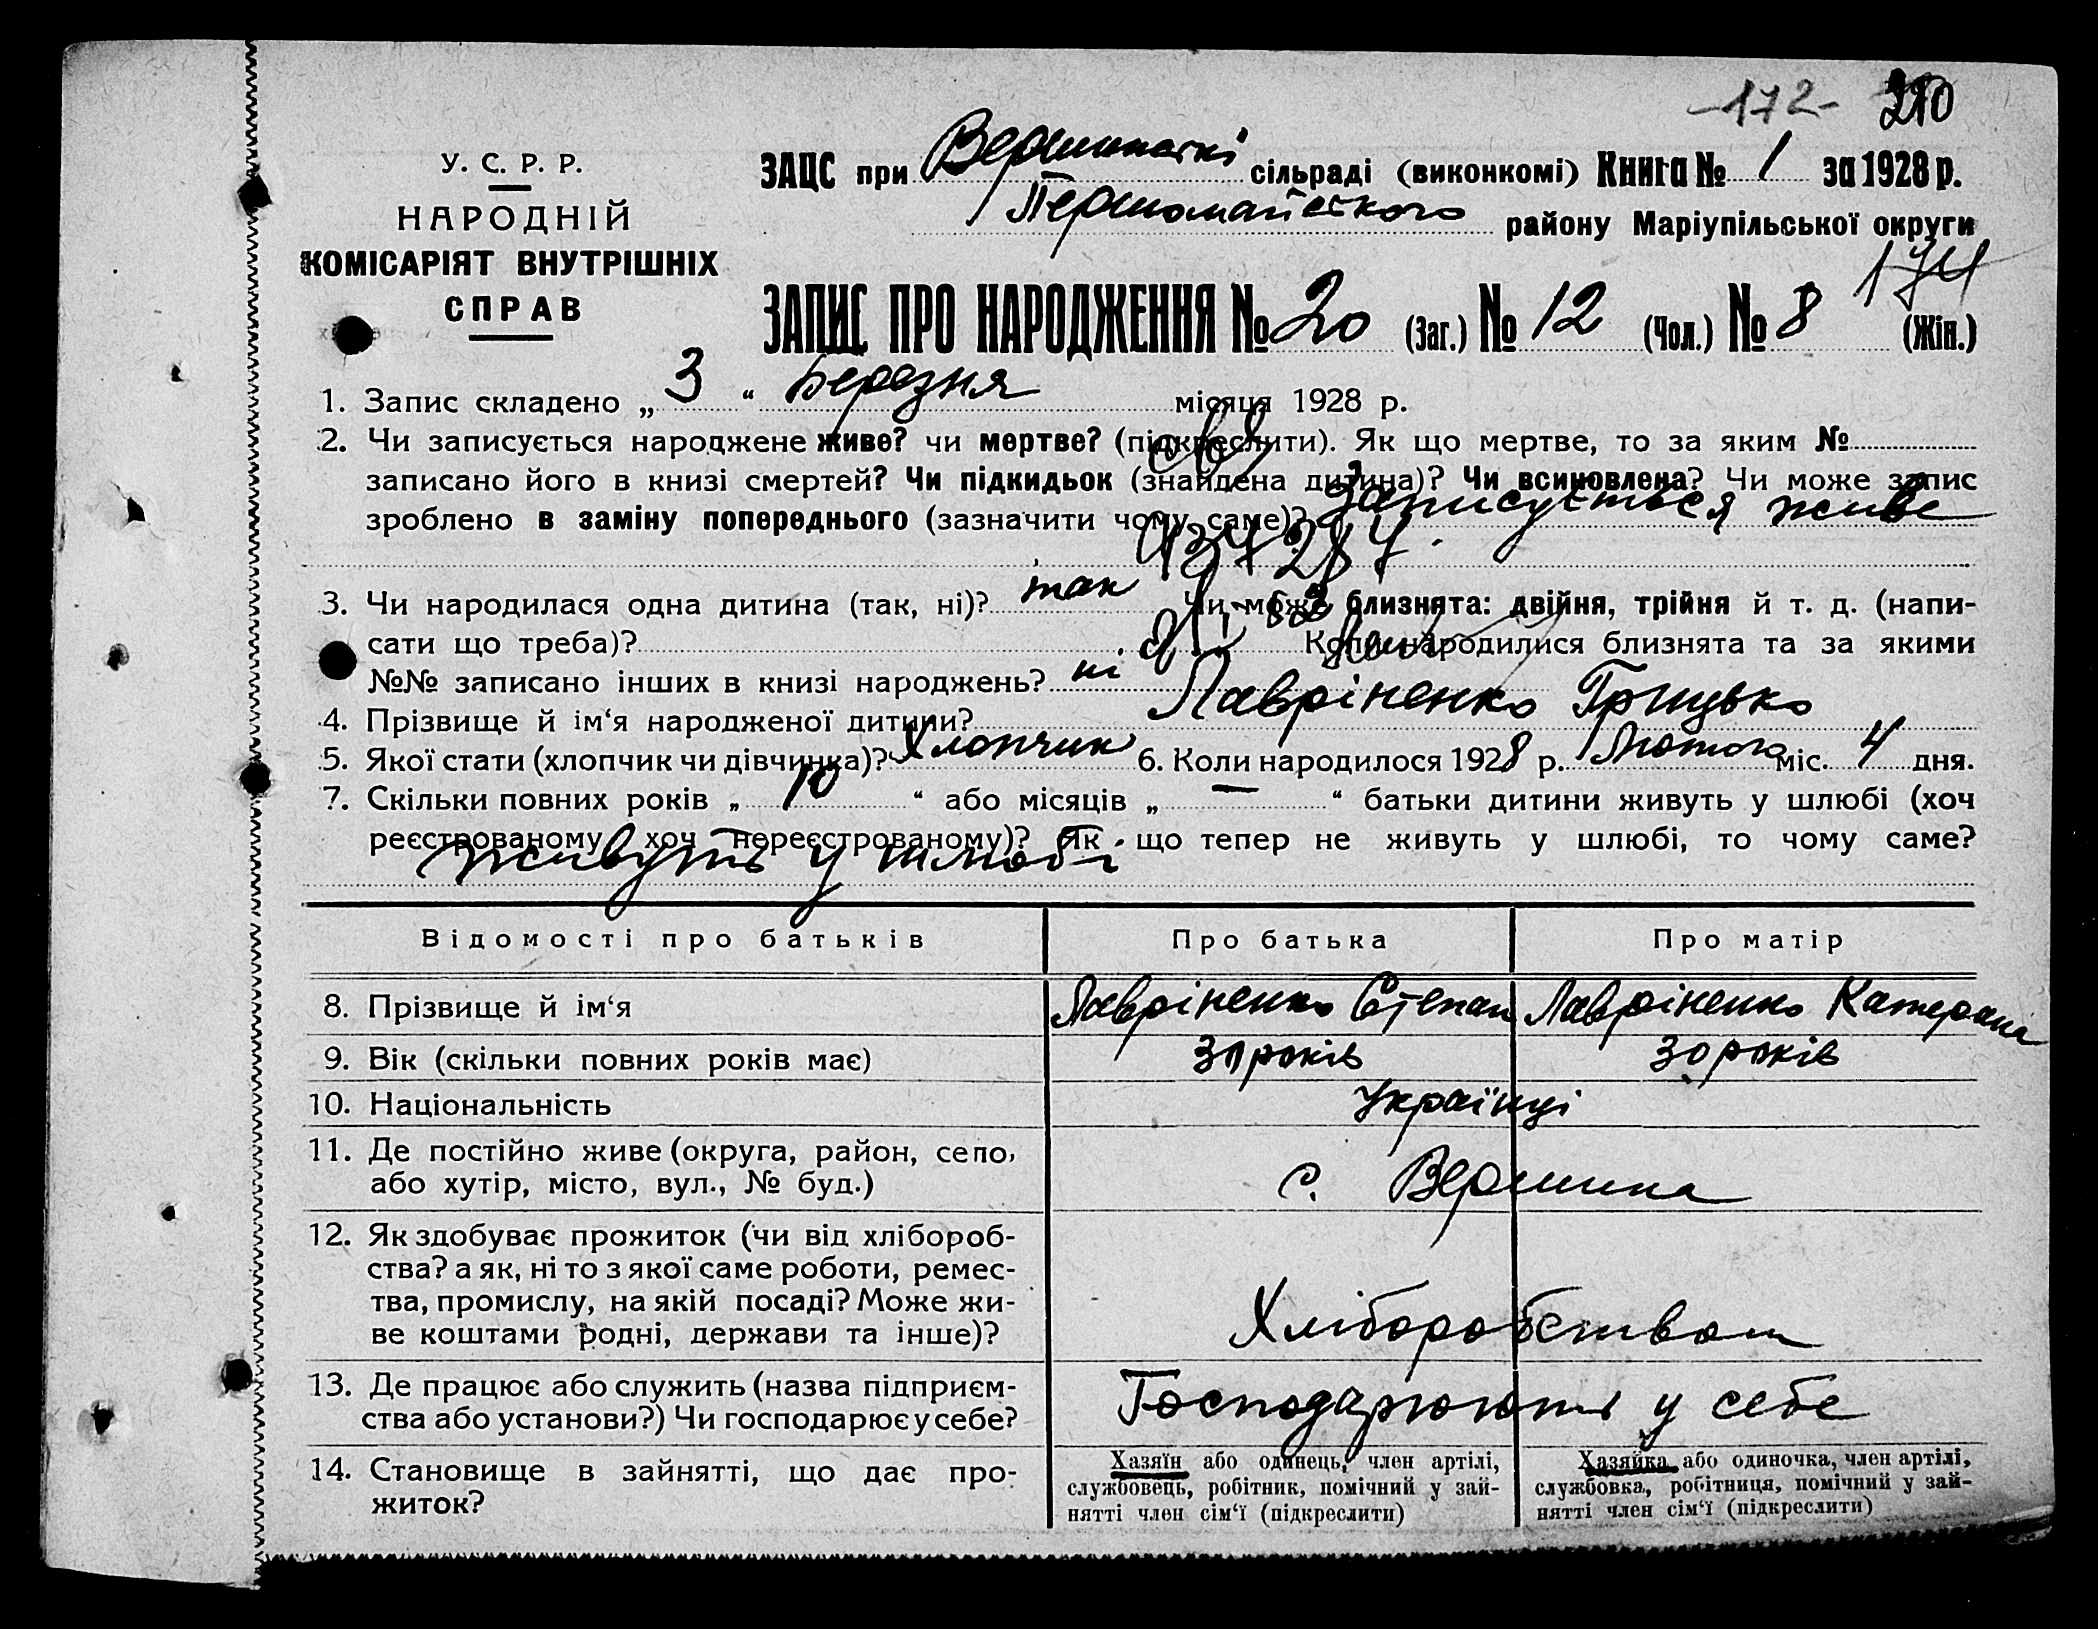 -172- 210
У. С. Р. Р.
НАРОДНІЙ
КОМІСАРІЯТ ВНУТРІШНІХ
СПРАВ
ЗАЦС при сільраді (виконкомі) Книга № 1 за 1928 р.
Першомайського району Маріупільської округи
174
ЗАПИС ПРО НАРОДЖЕННЯ № 20 (Заг.) № 12 (Чол.) № 8 (Жін.)
1. Запис складено „ 3 “ Березня місяця 1928 р.
2. Чи записується народжене живе? чи мертве? (підкреслити). Як що мертве, то за яким №
записано його в книзі смертей? Чи підкидьок (знайдена дитина)? Чи всиновлена? Чи може запис
зроблено в заміну попереднього (зазначити чому саме)? Записується живе
3. Чи народилася одна дитина (так, ні)? так Чи може близнята: двійня, трійня й т. д. (напи-
сати що треба)? Коли народилися близнята та за якими
№№ записано інших в книзі народжень? ні
4. Прізвище й ім‘я народженої дитини? Лавріненко Грицько
5. Якої стати (хлопчик чи дівчинка)? Хлопчик 6. Коли народилося 1928 р. Лютого міс. 4 дня.
7. Скільки повних років „ 10 “ або місяців „ — “ батьки дитини живуть у шлюбі (хоч
реєстрованому, хоч нереєстрованому)? Як що тепер не живуть у шлюбі, то чому саме?
Живуть у шлюбі
Відомості про батьків Про батька Про матір
8. Прізвище й ім‘я Лавріненко Степан Лавріненко Катерина
9. Вік (скільки повних років має) років 30 років
10. Національність Українці
11. Де постійно живе (округа, район, село,
або хутір, місто, вул., № буд.) с. Вершина
12. Як здобуває прожиток (чи від хлібороб-
ства? а як, ні то з якої саме роботи, ремес-
тва, промислу, на якій посаді? Може жи-
ве коштами родні, держави та інше)? Хліборобством
13. Де працює або служить (назва підприєм-
ства або установи?) Чи господарює у себе? Господарюють у себе
14. Становище в зайнятті, що дає про-
житок?
Хазяїн або одинець, член артілі,
службовець, робітник, помічний у зай-
нятті член сім‘ї (підкреслити)
Хазяйка або одиночка, член артілі,
службовка, робітниця, помічний у зай-
нятті член сім‘ї (підкреслити)